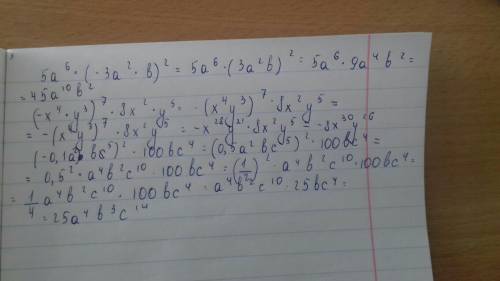 5a⁶ · (-3a² · b)² = 5a⁶ · (3a²b)² = 5a⁶ · 9a⁴b² =
= 45a¹⁰b²
(-x⁴ · y³)⁷ · 8x² · y⁵ = -(x⁴y³)⁷ · 8x²y⁵ =
= -(x⁴y³)⁷ · 8x²y⁵ = -x²⁸y²¹ · 8x²y⁵ = -8x³⁰y²⁶
(-0,1a²bs⁵)² · 100bc⁴ = (0,5a²bc⁵)² · 100bc⁴ =
= 0,5² · a⁴b²c¹⁰ · 100bc⁴ = (1/2)² · a⁴b²c¹⁰ · 100bc⁴ =
= 1/4 a⁴b²c¹⁰ · 100bc⁴ = a⁴b²c¹⁰ · 25bc⁴ =
= 25a⁴b³c¹⁴